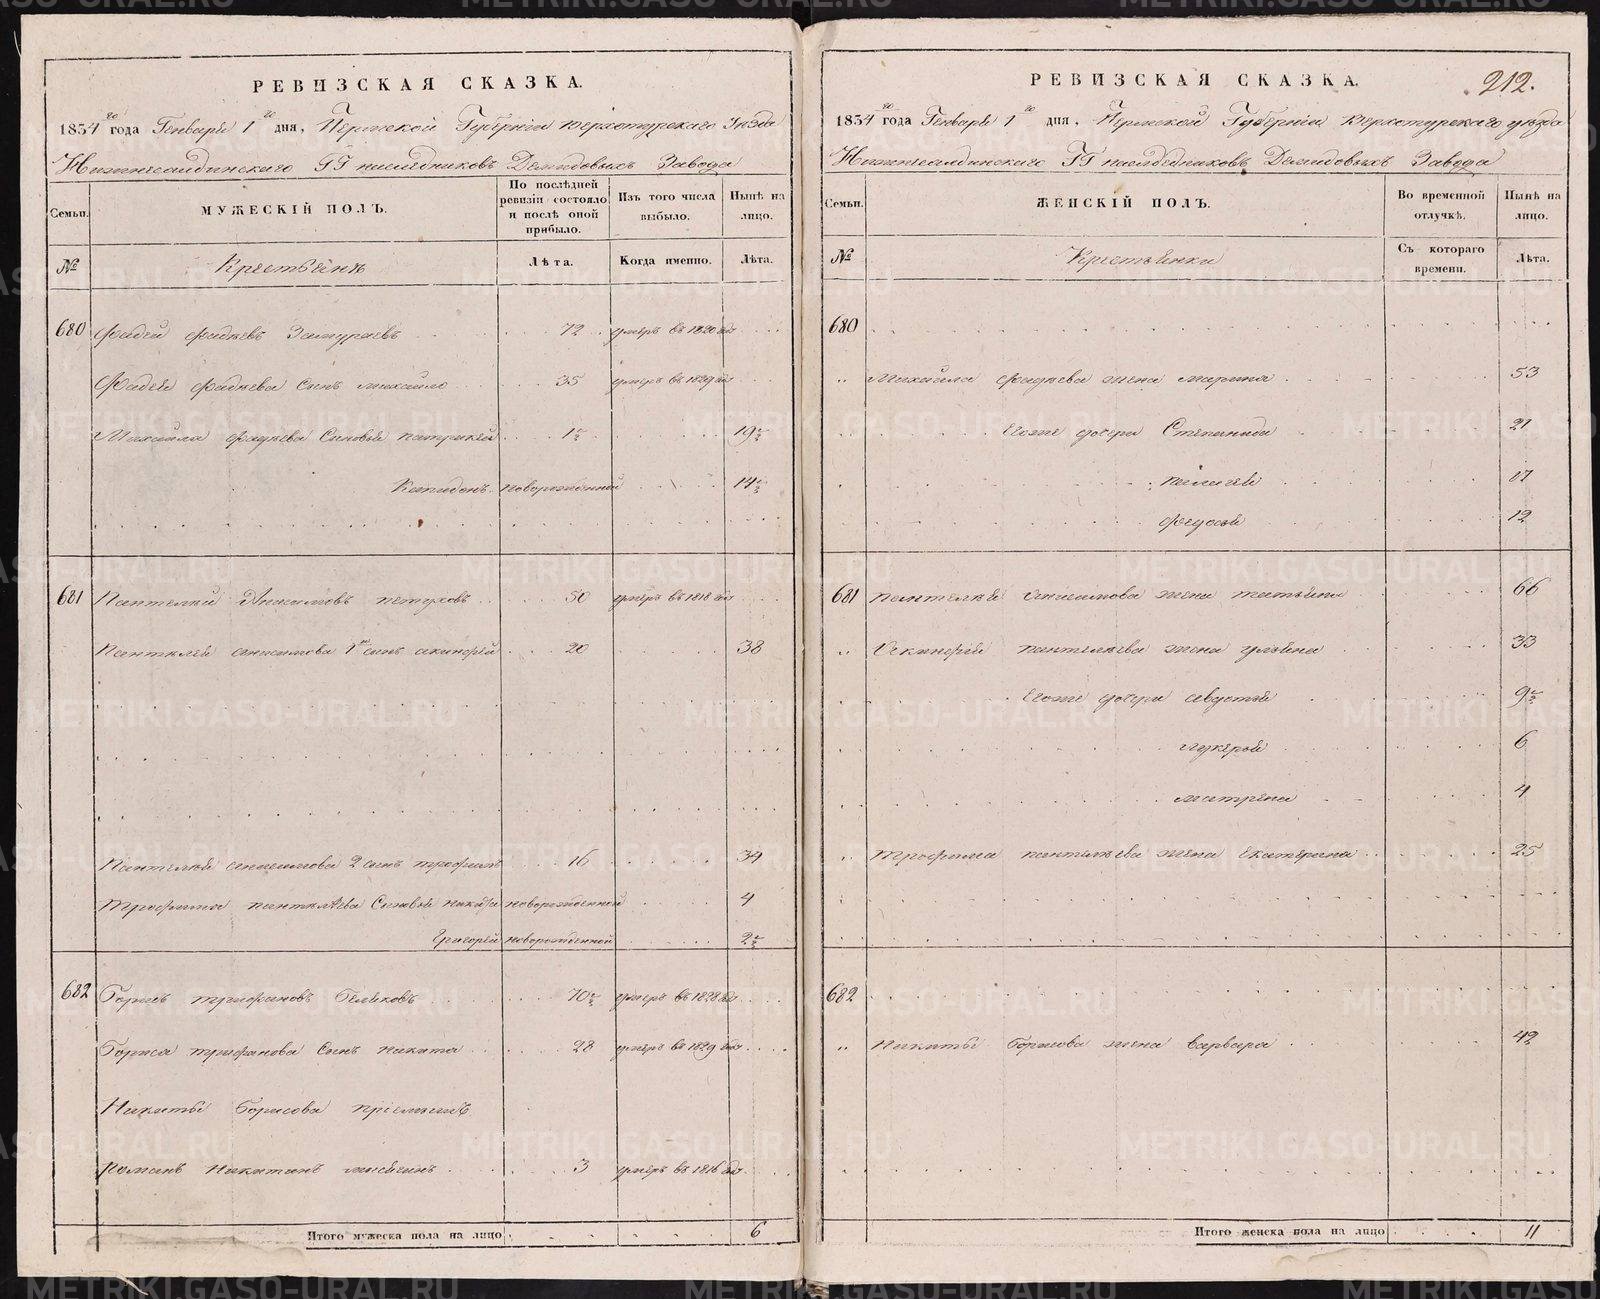 РЕВИЗСКАЯ СКАЗКА.
1834го года Генваря 1го дня, Пермской Губернии Верхотурского Уезда
Нижнесалдинского ГГ наследниковъ Демидовыхъ Завода
Семьи.
МУЖЕСКІЙ ПОЛЪ.
По послѣдней ревизіи состояло и послѣ оной прибыло.
Изъ того числа выбыло.
Нынѣ на лицо.
№
Крестьянъ
Лѣта.
Когда именно.
Лѣта.
680 Фадей Фадѣевъ 72 умеръ въ 1820
Фадея Фадѣева Сынъ Михайло 35 умеръ въ 1829
Михайла Фадѣева Сыновья Патрикей 1½ 19½
новорожденной 14½
681 Пантелей Анисимовъ Петуховъ 50 умеръ въ 1818
Пантелея Анисимова 1й сынъ 20 38
Пантелея Анисимова 2 сынъ Трофимъ 16 34
Трофима Пантелѣева Сыновья новорожденной 4
Григорей новорожденной 2½
682 Борисъ Трифоновъ Беляковъ 70½ умеръ въ 1828
Бориса Трифонова Сынъ Никита 28 умеръ въ 1829
Никиты Борисова пріемышъ
Романъ Никитинъ 3 умеръ въ 1816
Итого мужеска пола на лицо 6
212.
РЕВИЗСКАЯ СКАЗКА.
1834го года Генваря 1го дня, Пермской Губернии Верхотурского уезда
Нижнесалдинского ГГ наследниковъ Демидовыхъ Завода
Семьи.
ЖЕНСКІЙ ПОЛЪ.
Во временной отлучкѣ.
Нынѣ на лицо.
№
Крестьянки
Съ котораго времени.
Лѣта.
680
„ Михайла Фадѣева жена Марина 53
Егоже дочери Степанида 21
Пелагея 17
Федосья 12
681 Пантелея Анисимова жена Татьяна 66
„ Пантелѣева жена Ульяна 33
Егоже дочери 9½
Лукерья 6
Матрена 4
„ Трофима Пантелѣева жена Екатерина 25
682
„ Никиты Борисова жена Варвара 42
Итого женска пола на лицо 11
METRIKI.GASO-URAL.RU